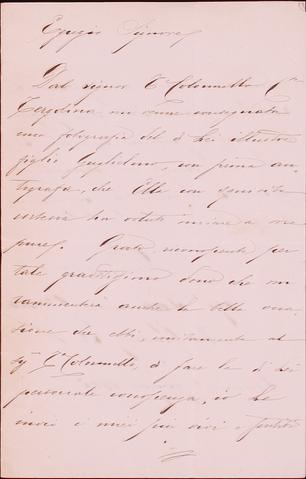 Egregio Signore,
Dal signor E Columetto
Cerzolina mi venne consegnata
una fotografia del di Lei illustre
figlio Guglielmo, con firma au-
tografa, che Ella con squisita
ha voluto inviare a me
pure. Grato, riconoscente per
tale graditissimo dono che mi
rammenterà anche la bella occa-
sione che ebbi, unitamente al
Columetto, di fare la di Lei
personale conoscenza, io Le
invio i miei più vivi e sentiti